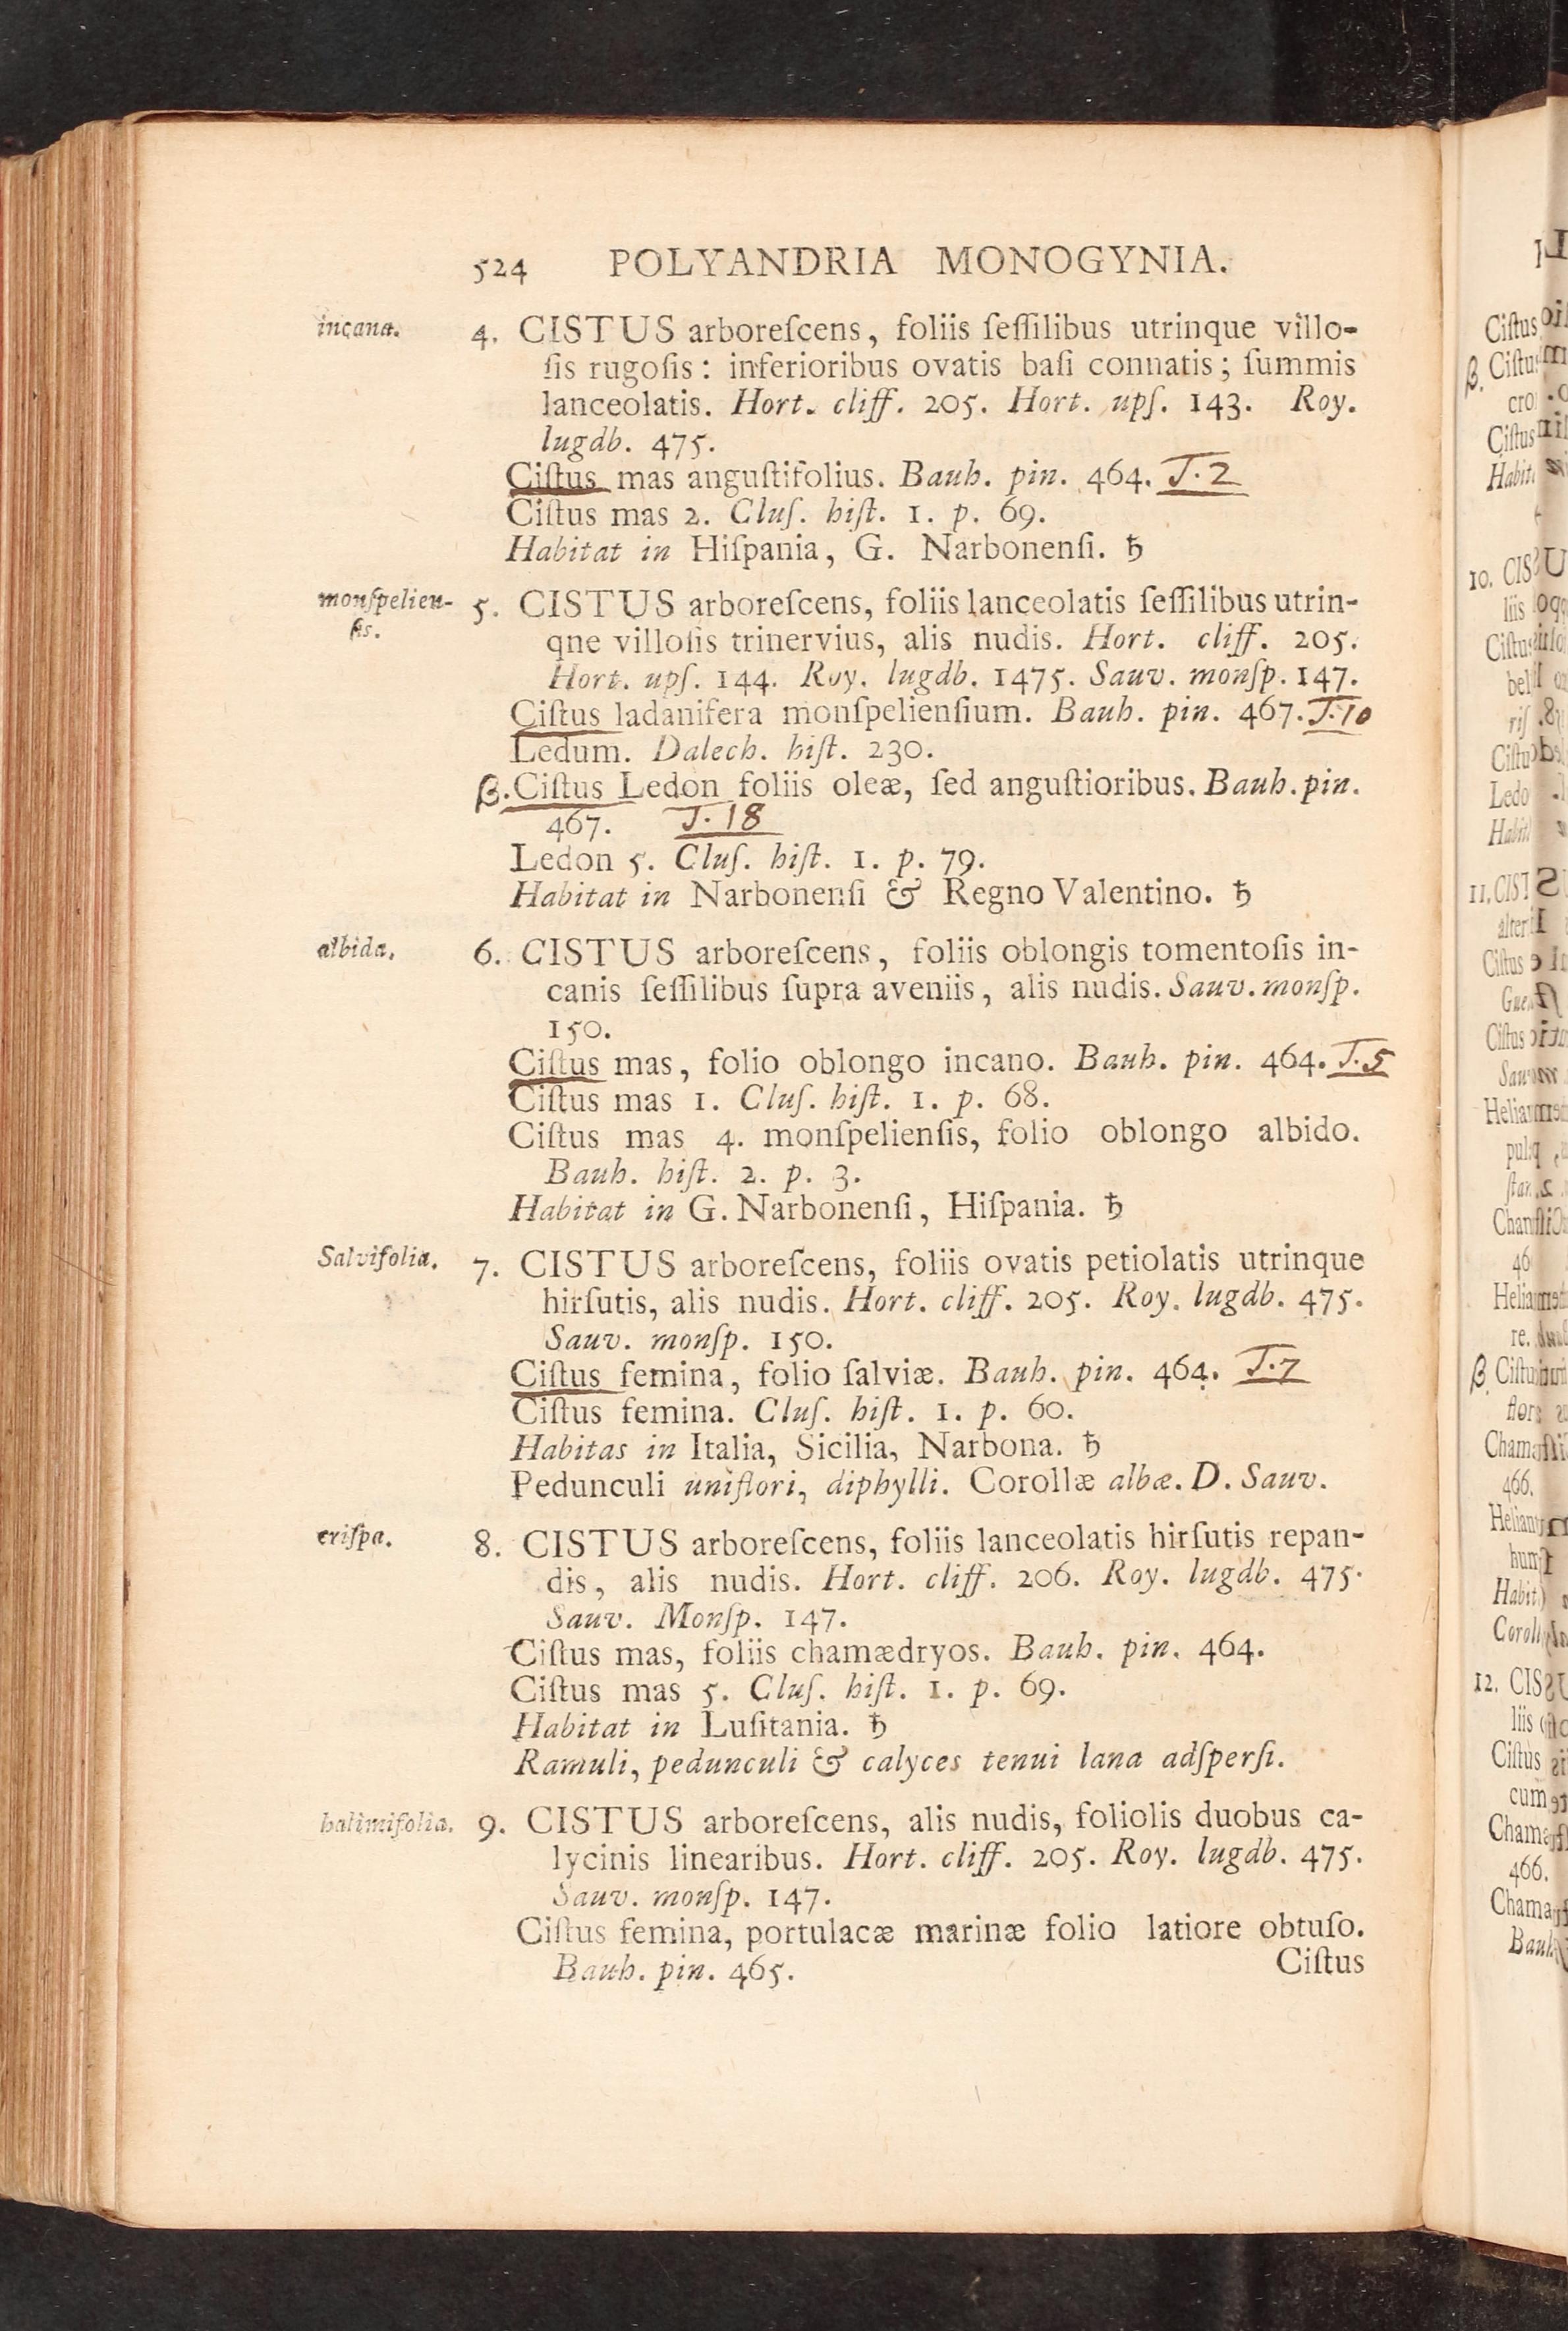 524 POLYANDRIA MONOGYNIA.
incana. 4. CISTUS arboreſcens, foliis ſeſſilibus utrinque villo-
ſis rugoſis: inferioribus ovatis baſi connatis; ſummis
lanceolatis. Hort. cliff. 205. Hort. upſ. 143. Roy.
lugdb. 475.
Ciſtus mas anguſtifolius. Bauh. pin. 464. T. 2
Ciſtus mas 2. Cluſ. hiſt. 1. p. 69.
Habitat in Hiſpania, G. Narbonenſi. ♄
monſpelien- 5. CISTUS arboreſcens, foliis lanceolatis ſeſſilibus utrin-
ſis. qne villoſis trinervius, alis nudis. Hort. cliff. 205.
Hort. upſ. 144. Roy. lugdb. 1475. Sauv. monſp. 147.
Ciſtus ladanifera monſpelienſium. Bauh. pin. 467. T. 10
Ledum. Dalech. hiſt. 230.
β. Ciſtus Ledon foliis oleæ, ſed anguſtioribus. Bauh. pin.
467. T. 18
Ledon 5. Cluſ. hiſt. 1. p. 79.
Habitat in Narbonenſi & Regno Valentino. ♄
albida. 6. CISTUS arboreſcens, foliis oblongis tomentoſis in-
canis ſeſſilibus ſupra aveniis, alis nudis. Sauv. monſp.
150.
Ciſtus mas, folio oblongo incano. Bauh. pin. 464. T. 5
Ciſtus mas 1. Cluſ. hiſt. 1. p. 68.
Ciſtus mas 4. monſpelienſis, folio oblongo albido.
Bauh. hiſt. 2. p. 3.
Habitat in G. Narbonenſi, Hiſpania. ♄
Salvifolia. 7. CISTUS arboreſcens, foliis ovatis petiolatis utrinque
hirſutis, alis nudis. Hort. cliff. 205. Roy. lugdb. 475.
Sauv. monſp. 150.
Ciſtus femina, folio ſalviæ. Bauh. pin. 464. T. 7
Ciſtus femina. Cluſ. hiſt. 1. p. 60.
Habitas in Italia, Sicilia, Narbona. ♄
Pedunculi uniflori, diphylli. Corollæ albæ. D. Sauv.
criſpa. 8. CISTUS arboreſcens, foliis lanceolatis hirſutis repan-
dis, alis nudis. Hort. cliff. 206. Roy. lugdb. 475.
Sauv. Monſp. 147.
Ciſtus mas, foliis chamædryos. Bauh. pin. 464.
Ciſtus mas 5. Cluſ. hiſt. 1. p. 69.
Habitat in Luſitania. ♄
Ramuli, pedunculi & calyces tenui lana adſperſi.
halimifolia. 9. CISTUS arboreſcens, alis nudis, foliolis duobus ca-
lycinis linearibus. Hort. cliff. 205. Roy. lugdb. 475.
Sauv. monſp. 147.
Ciſtus femina, portulacæ marinæ folio latiore obtuſo.
Bauh. pin. 465.
Ciſtus
Ciſtus
β.
10.
Ciſtus
11.
Ciſtus
Ciſtus
46
re.
β Ciſtu
466.
12.
liis
Ciſtus
cum
466.